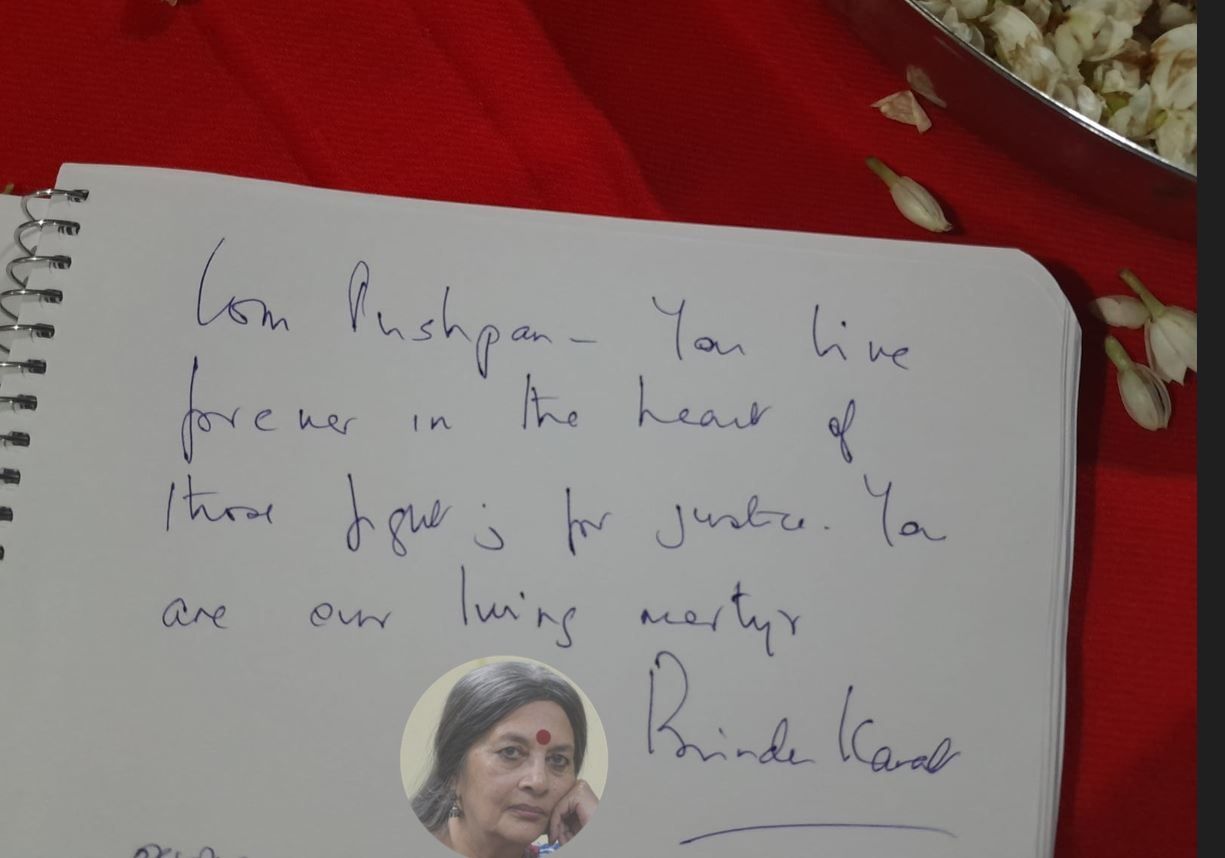 Com Pushpan - You live
forever in the heart of
those fighting for justice. You
are our living martyr
Brinda Karat